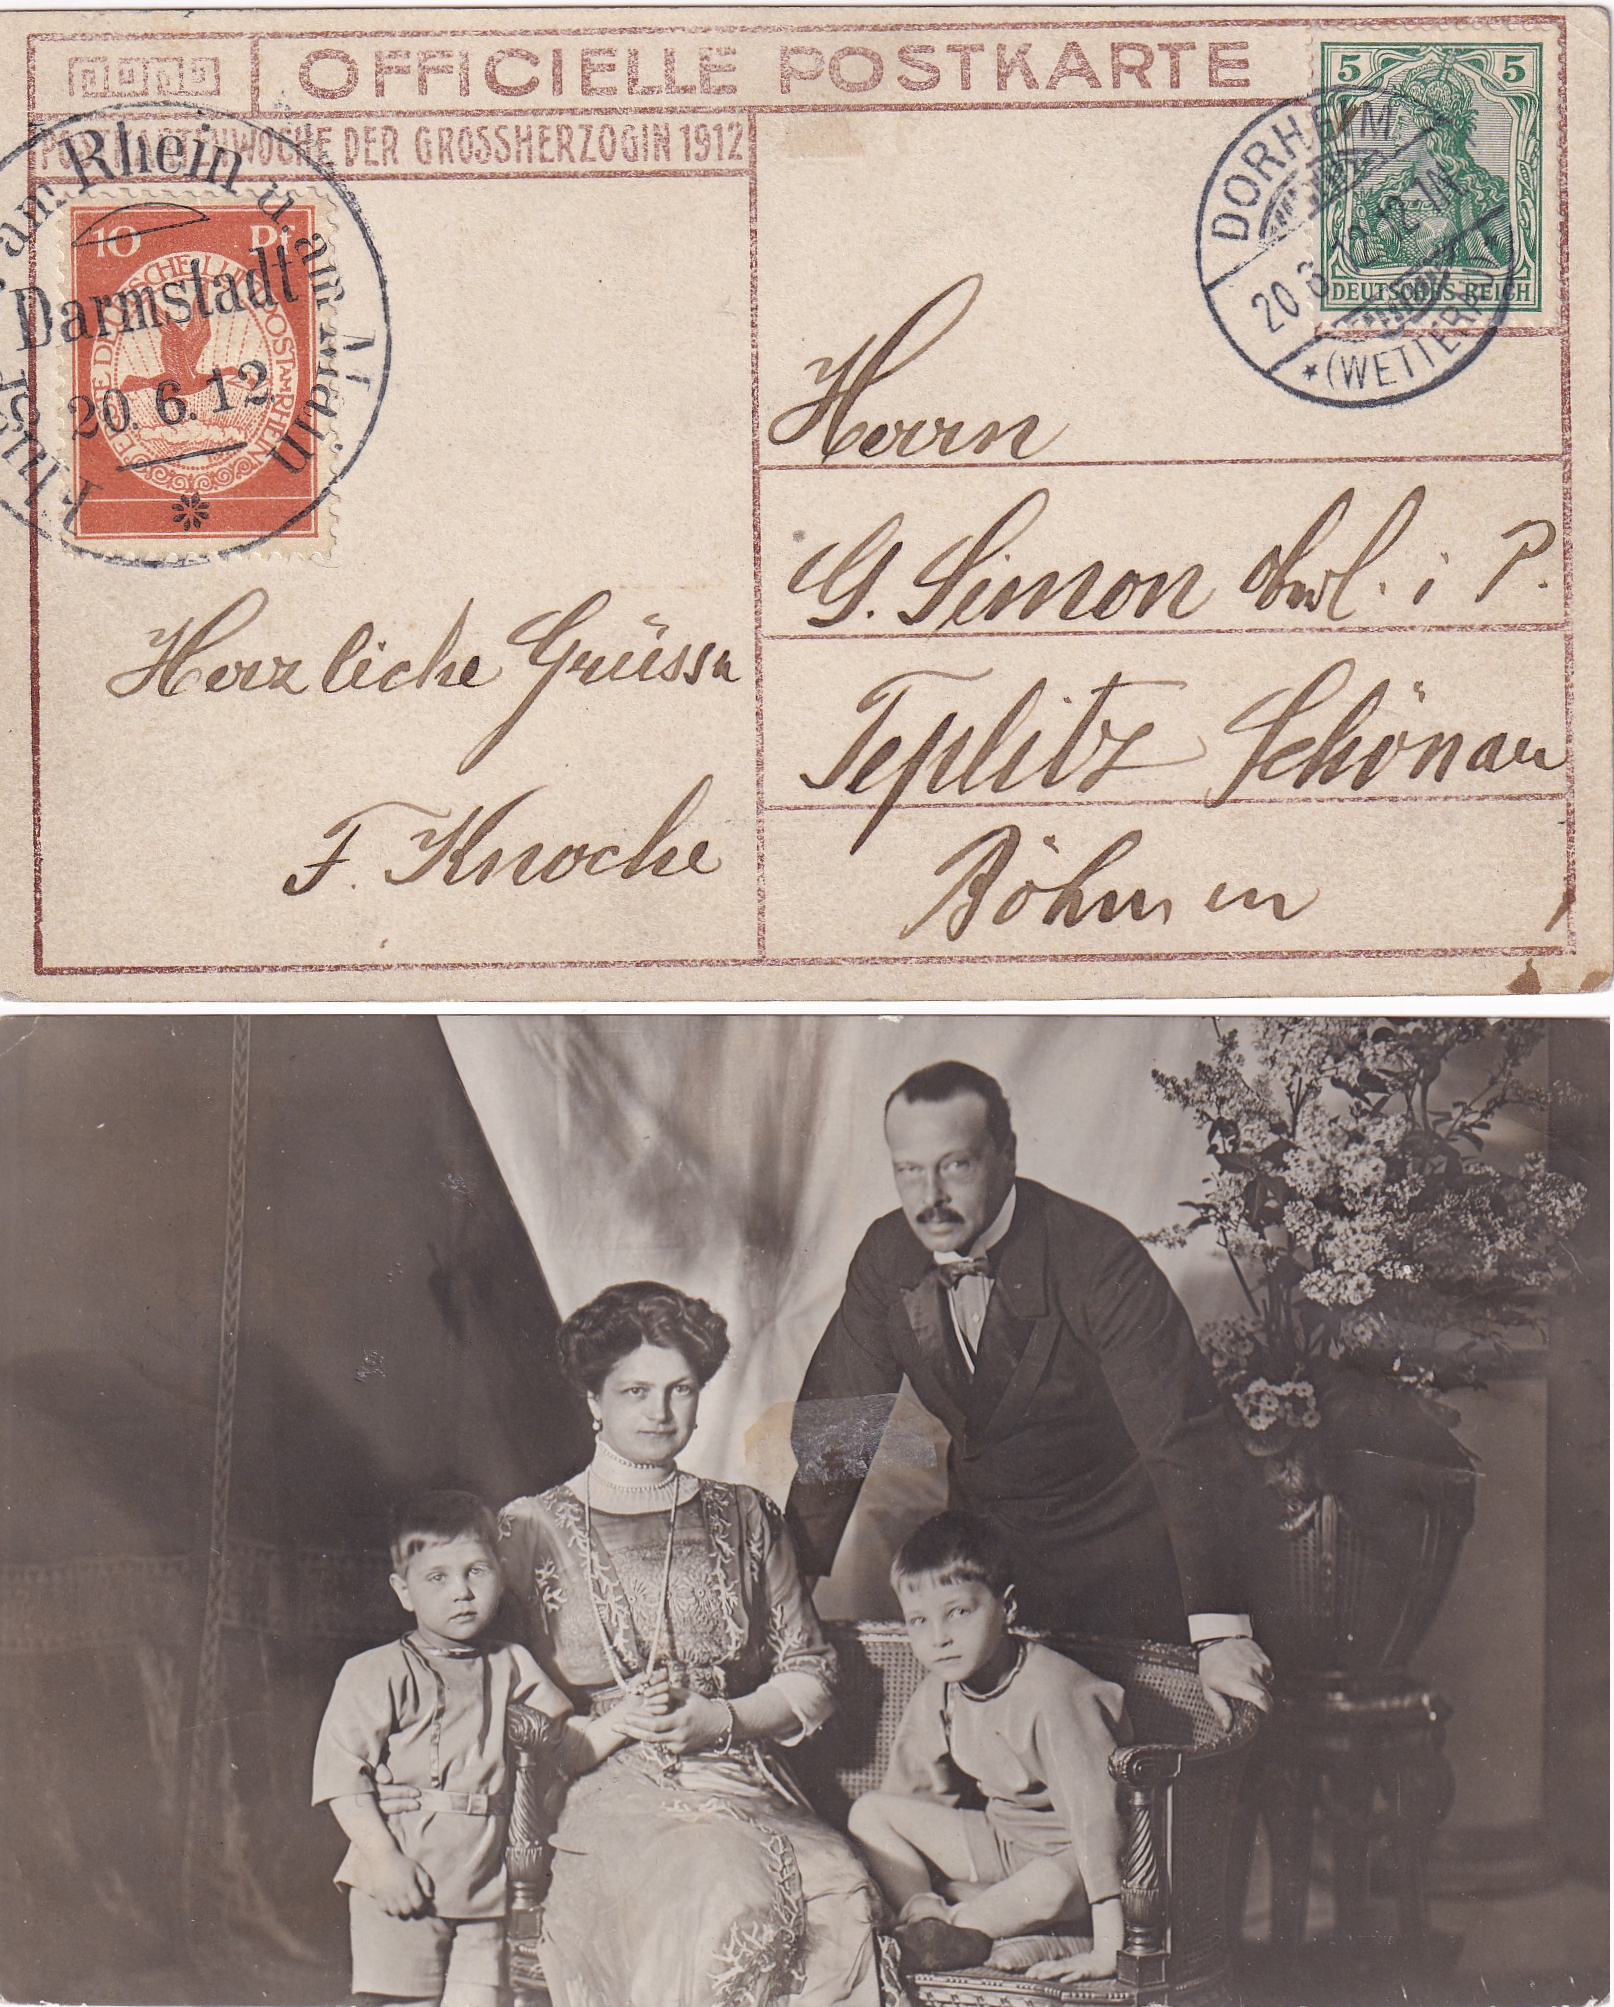 OFFICIELLE POSTKARTE
POSTKARTENWOCHE DER GROSSHERZOGIN 1912
am Rhein u. am Main
Darmstadt
20.6.12.
10 Pf
5 5
DEUTSCHES REICH
DORHEIM
20.6.12.12-1N
* (WETTERAU)
Herrn
G. Simon i P.
Teplitz Schönau
Böhmen
Herzliche Grüsse
F. Knoche